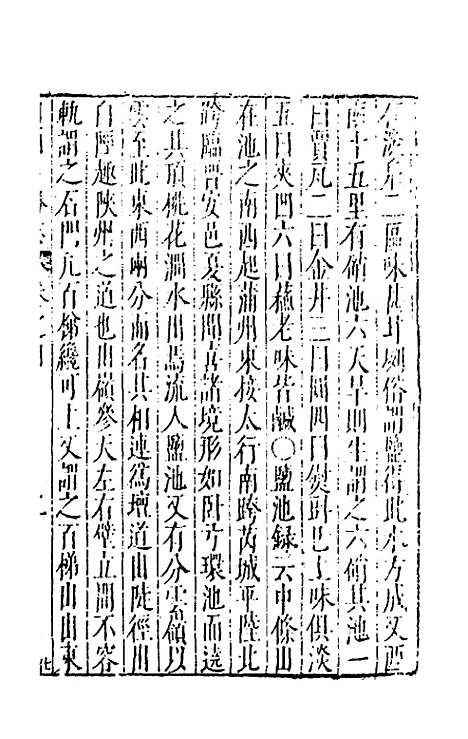 二區味甘其俗謂鹽得此水方成又西
南十五里有鹻池六天旱則生謂之六鹻其池一
曰賈瓦二曰金井三曰圌四曰熨卧已上味俱淡
五曰夾凹六曰蘓老味皆鹹〇鹽池録云中條山
在池之南西起蒲州東接太行南跨芮城平陸北
跨臨晋安邑夏縣聞喜諸境形如卧弓環池而遶
之其頂桃花澗水出焉流入鹽池又有分雲嶺以
雲至此東西兩分而名其相連爲壇道山陡徑川
白陘趣陜州之道也山嶺參天左右壁立間不容
軌謂之石門凢百梯纔可上又謂之百梯山山東